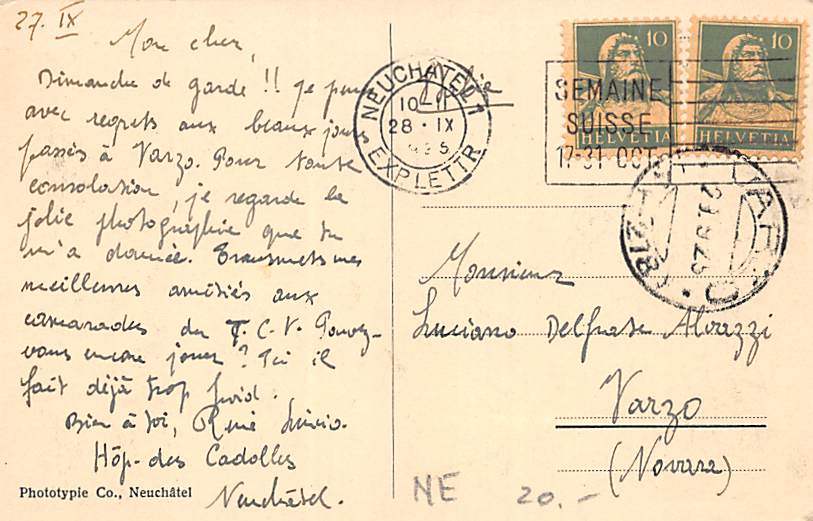 27. IX
Mon cher,
Dimanche de garde !! Je pense
avec regrets aux beaux jours
passés à Varzo. Pour toute
consolation, je regarde la
jolie photographie que tu
m'a donnée. Transmets mes
meilleures amitiés aux
camarades du T.C.V. Pouvez-
vous encore jouer ? Ici il
fait déjà trop froid.
Bien à toi, René
Hôp. des Cadolles
Neuchâtel.
Phototypie Co., Neuchâtel
NEUCHÂTEL 1
10-11
28 · IX
EXP. LETTR.
SEMAINE
SUISSE
17-31 OCT.
10
HELVETIA
10
HELVETIA
VARZO
Monsieur
Luciano Delfrate Alvazzi
Varzo
(Novara)
NE
20.-